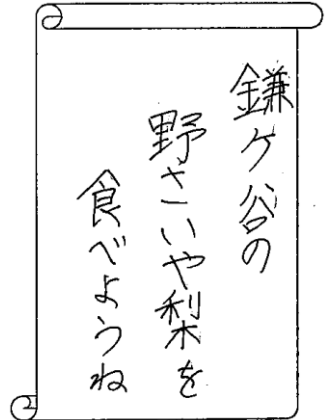 鎌ケ谷の
野さいや梨を
食べようね